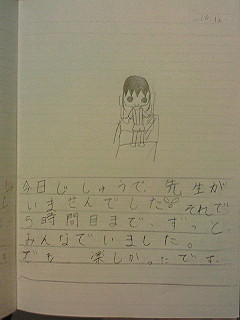 10.12
今日じしゅうで、先生が
いませんでした それで
5時間目まで ずっと
みんなでいました。
でも 楽しかったです。